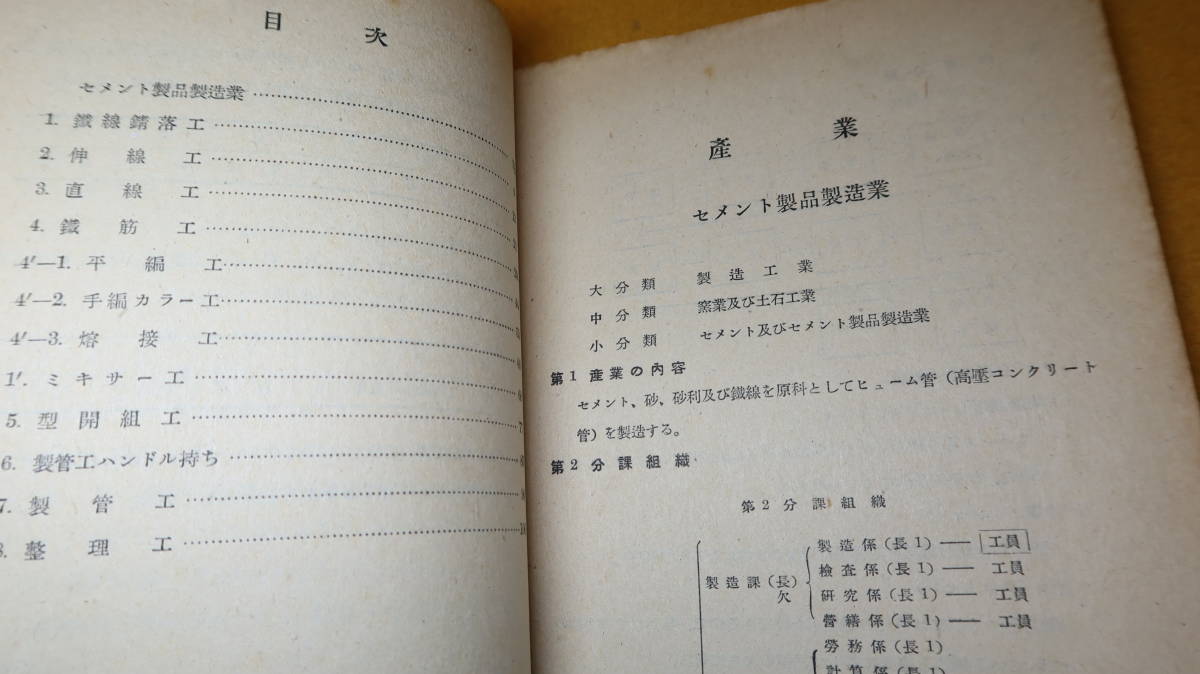 目次
セメント製品製造業
1. 鐵線錆落工
2. 伸線工
3. 直線工
4. 鐵筋工
4′—1. 平編工
4′—2. 手編カラー工
4′—3. 熔接工
1′. ミキサー工
5. 型開組工 7
6. 製管工ハンドル持ち
7. 製管工
8. 整理工
産業
セメント製品製造業
大分類 製造工業
中分類 窯業及び土石工業
小分類 セメント及びセメント製品製造業
第1 産業の内容
セメント、砂、砂利及び鐵線を原料としてヒューム管(高壓コンクリート
管)を製造する。
第2 分課組織
第2 分課組織
製造係(長1) — 工員
檢査係(長1) — 工員
製造課(長)欠
研究係(長1) — 工員
營繕係(長1) — 工員
勞務係(長1)
計算係(長1)